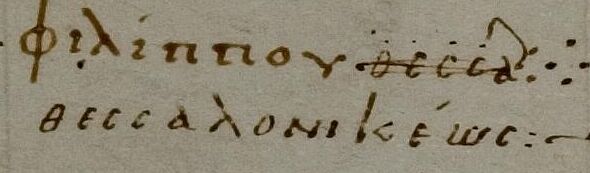 φιλίππου θεσσα⁘
θεσσαλονικέως:—